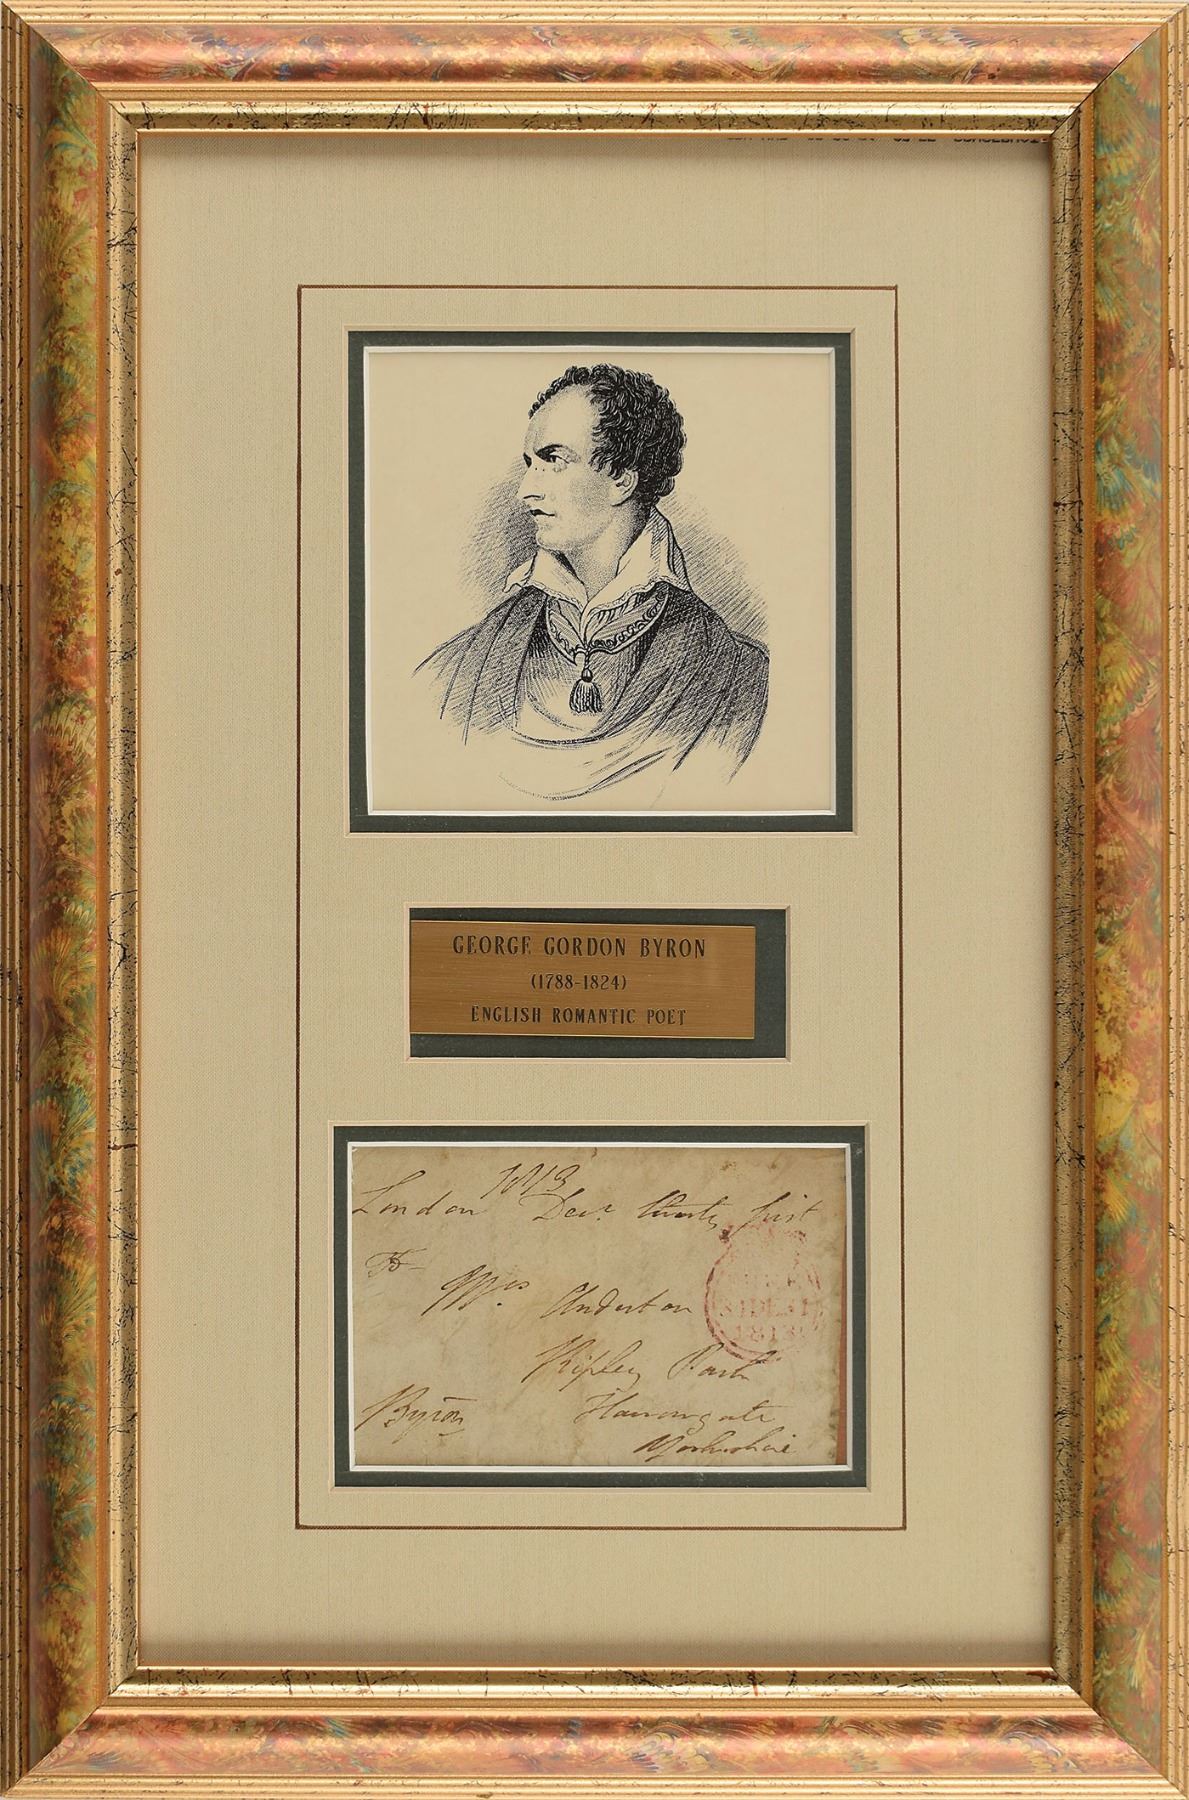 GEORGE GORDON BYRON
(1788-1824)
ENGLISH ROMANTIC POET
1813
London Decr. thirty first
To
Mrs. Anderton
Ripley Park
Harrowgate
Byron
Yorkshire
FREE
31DE31
1813